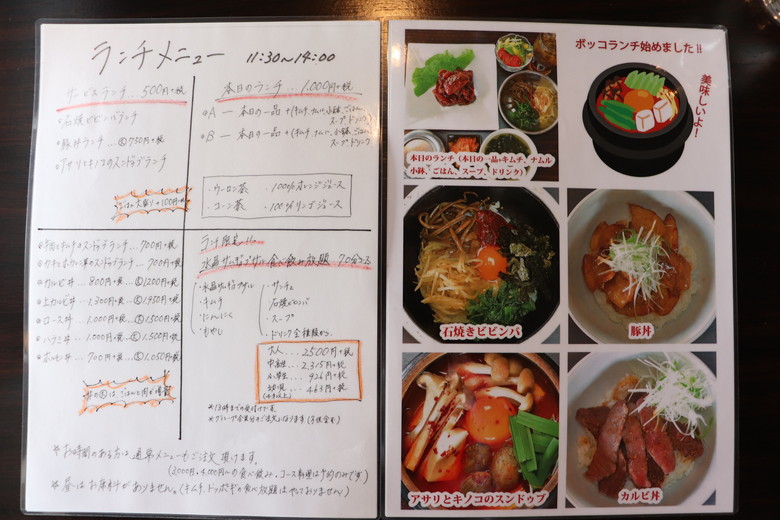 ランチメニュー 11:30~14:00
サービスランチ…500円+税
・石焼ビビンバランチ
・豚丼ランチ…大750円+税
・アサリとキノコのスンドゥブランチ
ごはん大盛り+100円+税
本日のランチ…1,000円+税
・A ー 本日の一品+(キムチ、ナムル、小鉢、ごはん、
スープ、ドリンク)
・B ー 本日の一品+(キムチ、ナムル、小鉢、ごはん、
スープ、ドリンク)
・ウーロン茶 ・100%オレンジジュース
・コーン茶 ・100%リンゴジュース
スンドゥブランチ…700円+税
スンドゥブランチ…700円+税
・カルビ丼…800円+税…大1,200円+税
・上カルビ丼…1,300円+税…大1,950円+税
・ロース丼…1,000円+税…大1,500円+税
・ハラミ丼…1,000円+税…大1,500円+税
・ホルモン丼…700円+税…大1,050円+税
丼の大は、ごはんと肉が増量
ランチ限定
水晶サムギョプサル 食べ飲み放題 70分
・水晶サムギョプサル
・キムチ
・にんにく
・もやし
・サンチュ
・石焼ビビンバ
・スープ
・ドリンク全種類から
大人…2500円+税
中高生…2,315円+税
小学生…926円+税
幼児…463円+税
(4才以上)
※13時までの受付けです。
※グループ全員分のご注文になります
※お時間のある方は通常メニューもご注文頂けます。
※昼はお席料がありません。(キムチ、トッポギの食べ放題はやっておりません)
ポッコランチ始めました!!
美味しいよ!
本日のランチ(本日の一品+キムチ、ナムル
小鉢、ごはん、スープ、ドリンク)
石焼きビビンバ
豚丼
アサリとキノコのスンドゥブ
カルビ丼